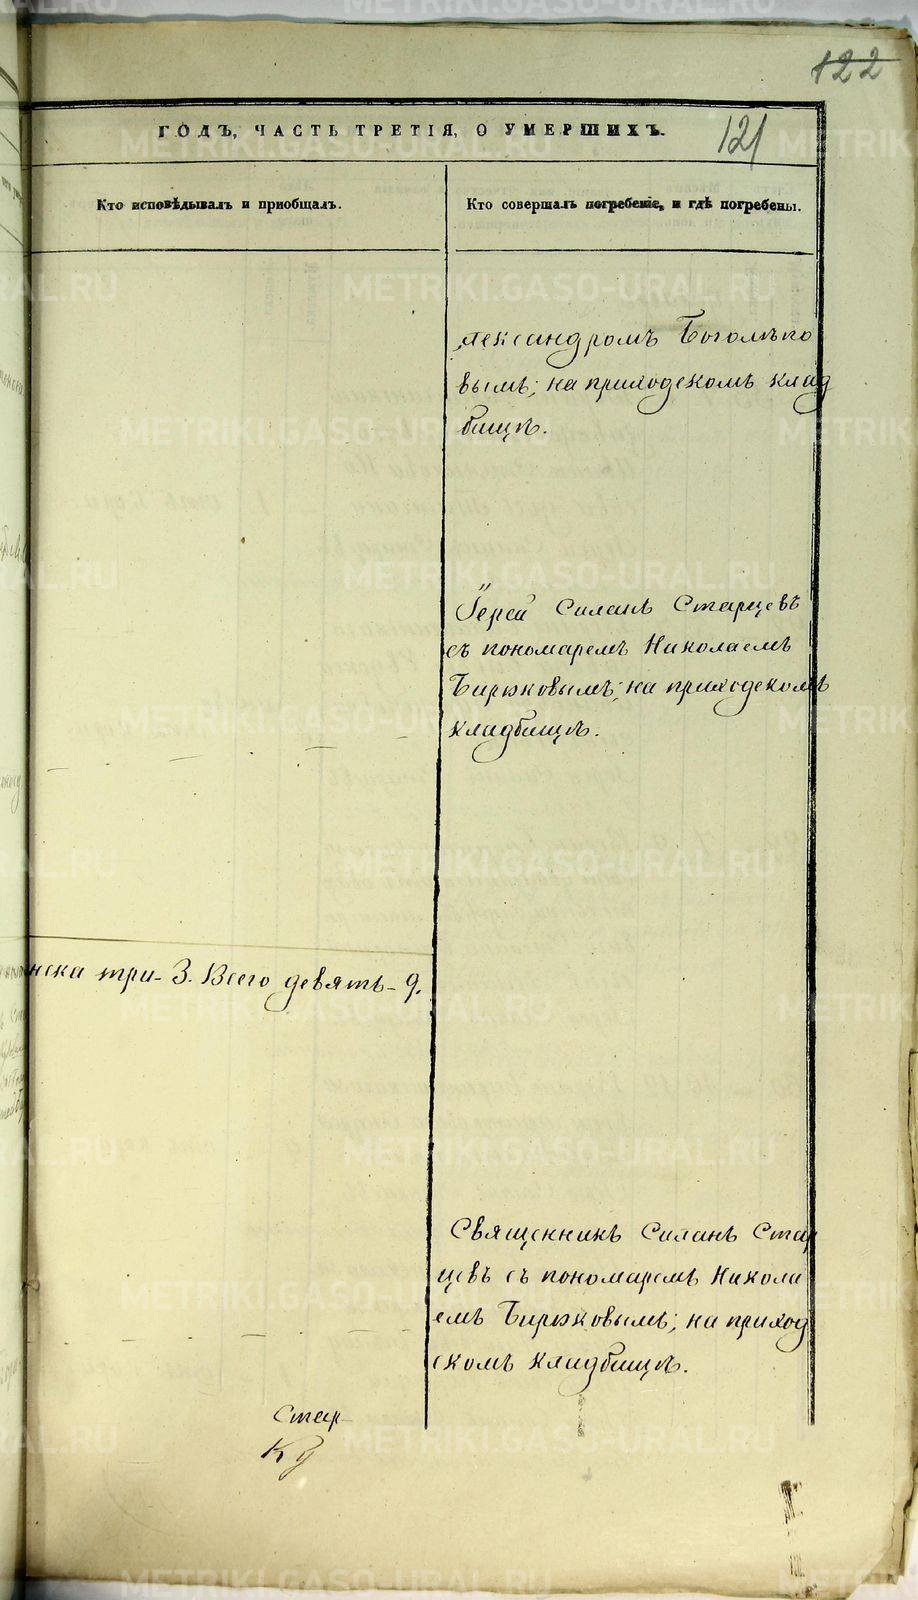 122
ГОДЪ, ЧАСТЬ ТРЕТІЯ, О УМЕРШИХЪ.
121
Кто исповѣдывалъ и приобщалъ.
Кто совершалъ погребеніе, и гдѣ погребены.
Александромъ Боголѣпо
вымъ; на приходскомъ клад
бищѣ.
Іерей Силанъ Старцевъ
съ пономаремъ Николаемъ
Бирюковымъ; на приходскомъ
кладбищѣ.
нска три - 3. Всего девять - 9.
Священникъ Силанъ Стар
цевъ съ пономаремъ Никола
емъ Бирюковымъ; на приход
скомъ кладбищѣ.
Стар
METRIKI.GASO-URAL.RU